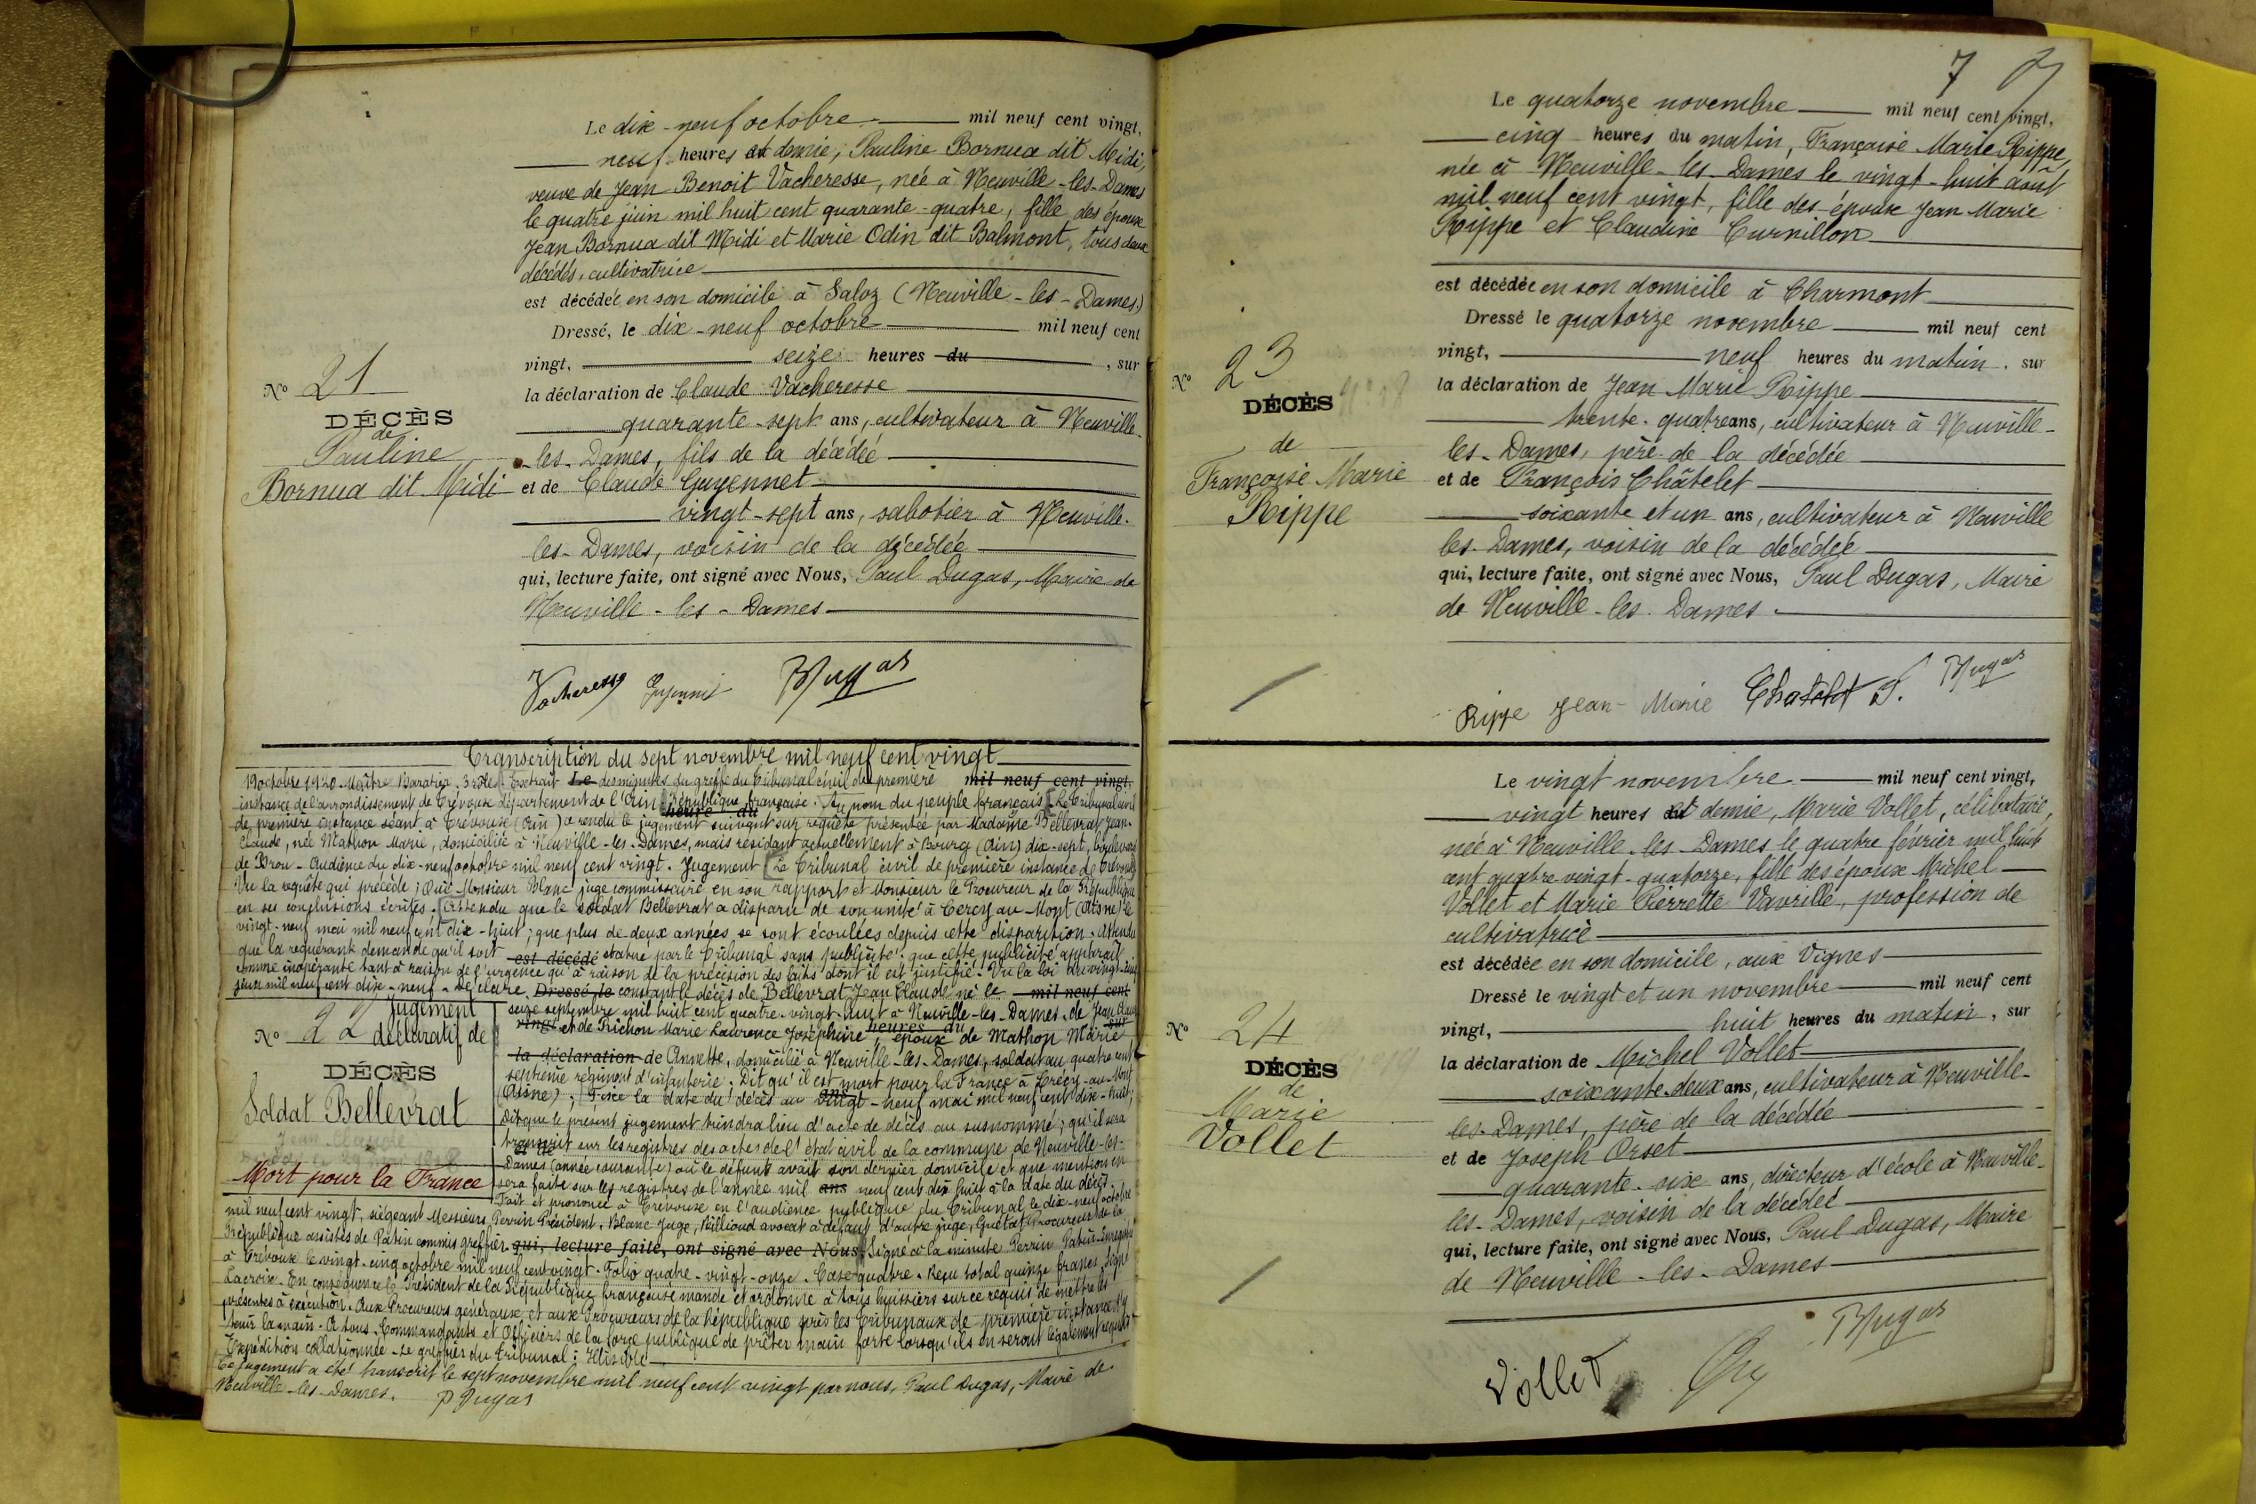 Le dix-neuf octobre mil neuf cent vingt,
neuf heures et demie, Pauline Bornua dit Midi,
veuve de Jean Benoit Vacheresse, née à Neuville-les-Dames
le quatre juin mil huit cent quarante-quatre, fille des époux
Jean Bornua dit Midi et Marie Odin dit Balmont, tous deux
décédés, cultivatrice
est décédée en son domicile à Saloz (Neuville-les-Dames)
Dressé, le dix-neuf octobre mil neuf cent
vingt, seize heures du, sur
la déclaration de Claude Vacheresse
quarante-sept ans, cultivateur à Neuville-
les-Dames, fils de la décédée
et de Claude Guyennet
vingt-sept ans, sabotier à Neuville-
les-Dames, voisin de la décédée
qui, lecture faite, ont signé avec Nous, Paul Dugas, Maire de
Neuville-les-Dames
No 21
DÉCÈS
de
Pauline
Bornua dit Midi
Vacheresse Guyennet PDugas
Transcription du sept novembre mil neuf cent vingt
19 octobre 1920 - Maître Baratin, 3 rôles Extrait Le des minutes du greffe du Tribunal civil de première mil neuf cent vingt,
instance de l'arrondissement de Trévoux département de l'Ain. République française. Au nom du peuple français. Le Tribunal civil
heure du
de première instance séant à Trévoux (Ain) a rendu le jugement suivant sur requête présentée par Madame Bellevrat Jean-
Claude, née Mathon Marie, domiciliée à Neuville-les-Dames, mais résidant actuellement à Bourg (Ain) dix-sept, boulevard
de Brou - Audience du dix-neuf octobre mil neuf cent vingt. Jugement Le Tribunal civil de première instance de Trévoux
Vu la requête qui précède; Ouï Monsieur Blanc juge commissaire en son rapport et Monsieur le Procureur de la République
en ses conclusions écrites. Attendu que le soldat Bellevrat a disparu de son unité à Cercy au Mont (Aisne) le
vingt-neuf mai mil neuf cent dix-huit; que plus de deux années se sont écoulées depuis cette disparition. Attendu
que la requérante demande qu'il soit est décédé statué par le Tribunal sans publicité; que cette publicité apparaît
comme inopérante tant à raison de l'urgence qu'à raison de la précision des faits dont il est justifié. Vu la loi du vingt-cinq
juin mil neuf cent dix-neuf - Déclare Dressé, le constant le décès de Bellevrat Jean Claude né le mil neuf cent
seize septembre mil huit cent quatre-vingt-huit à Neuville-les-Dames, de Jean Claude
vingt et de Prichon Marie Laurence Joséphine, heures du époux de Mathon Marie sur
la déclaration de Annette, domicilié à Neuville-les-Dames, soldat au quatre cent
septième régiment d'infanterie. Dit qu'il est mort pour la France à Crécy-au-Mont
(Aisne); Fixe la date du décès au ans vingt-neuf mai mil neuf cent dix-huit;
Dit que le présent jugement tiendra lieu d'acte de décès au susnommé; qu'il sera
transcrit et de sur les registres des actes de l'état civil de la commune de Neuville-les-
Dames (année courante) où le défunt avait son dernier domicile et que mention en
sera faite sur les registres de l'année mil ans neuf cent dix huit à la date du décès.
Fait et prononcé à Trévoux en l'audience publique du Tribunal le dix-neuf octobre
No 22 Jugement
déclaratif de
DÉCÈS
Soldat Bellevrat
Jean Claude
Mort pour la France
mil neuf cent vingt, siégeant Messieurs Perrin Président, Blanc Juge, Billioud avocat à défaut d'autre juge, Procureur de la
République assistés de Patin commis greffier. qui, lecture faite, ont signé avec Nous, Signé à la minute Perrin Patin. Enregistré
à Trévoux le vingt-cinq octobre mil neuf cent vingt. Folio quatre-vingt-onze. Case quatre. Reçu total quinze francs. Signé
Lacroix. En conséquence le Président de la République française mande et ordonne à tous huissiers sur ce requis de mettre les
présentes à exécution. Aux Procureurs généraux et aux Procureurs de la République près les Tribunaux de première instance d'y
tenir la main. A tous Commandants et Officiers de la force publique de prêter main forte lorsqu'ils en seront légalement requis.
Expédition collationnée. Le greffier du tribunal: Illisible
Ce jugement a été transcrit le sept novembre mil neuf cent vingt par nous, Paul Dugas, Maire de
Neuville-les-Dames. PDugas
7
Le quatorze novembre mil neuf cent vingt,
cinq heures du matin, Françoise Marie Rippe,
née à Neuville-les-Dames le vingt-huit août
mil neuf cent vingt, fille des époux Jean Marie
Rippe et Claudine Curnillon
est décédée en son domicile à Charmont
Dressé le quatorze novembre mil neuf cent
vingt, neuf heures du matin, sur
la déclaration de Jean Marie Rippe
trente-quatre ans, cultivateur à Neuville-
les-Dames, père de la décédée
et de François Châtelet
soixante et un ans, cultivateur à Neuville
les-Dames, voisin de la décédée
qui, lecture faite, ont signé avec Nous, Paul Dugas, Maire
de Neuville-les-Dames
No 23
DÉCÈS
de
Françoise Marie
Rippe
Rippe Jean-Marie Chatelet F. PDugas
Le vingt novembre mil neuf cent vingt,
vingt heures et demie, Marie Vollet, célibataire,
née à Neuville-les-Dames le quatre février mil huit
cent quatre-vingt-quatorze, fille des époux Michel
Vollet et Marie Pierrette Vavrille, profession de
cultivatrice
est décédée en son domicile, aux Vignes
Dressé le vingt et un novembre mil neuf cent
vingt, huit heures du matin, sur
la déclaration de Michel Vollet
soixante-deux ans, cultivateur à Neuville-
les-Dames, père de la décédée
et de Joseph Orset
quarante-six ans, directeur d'école à Neuville-
les-Dames, voisin de la décédée
qui, lecture faite, ont signé avec Nous, Paul Dugas, Maire
de Neuville-les-Dames
No 24
DÉCÈS
de
Marie
Vollet
Vollet PDugas